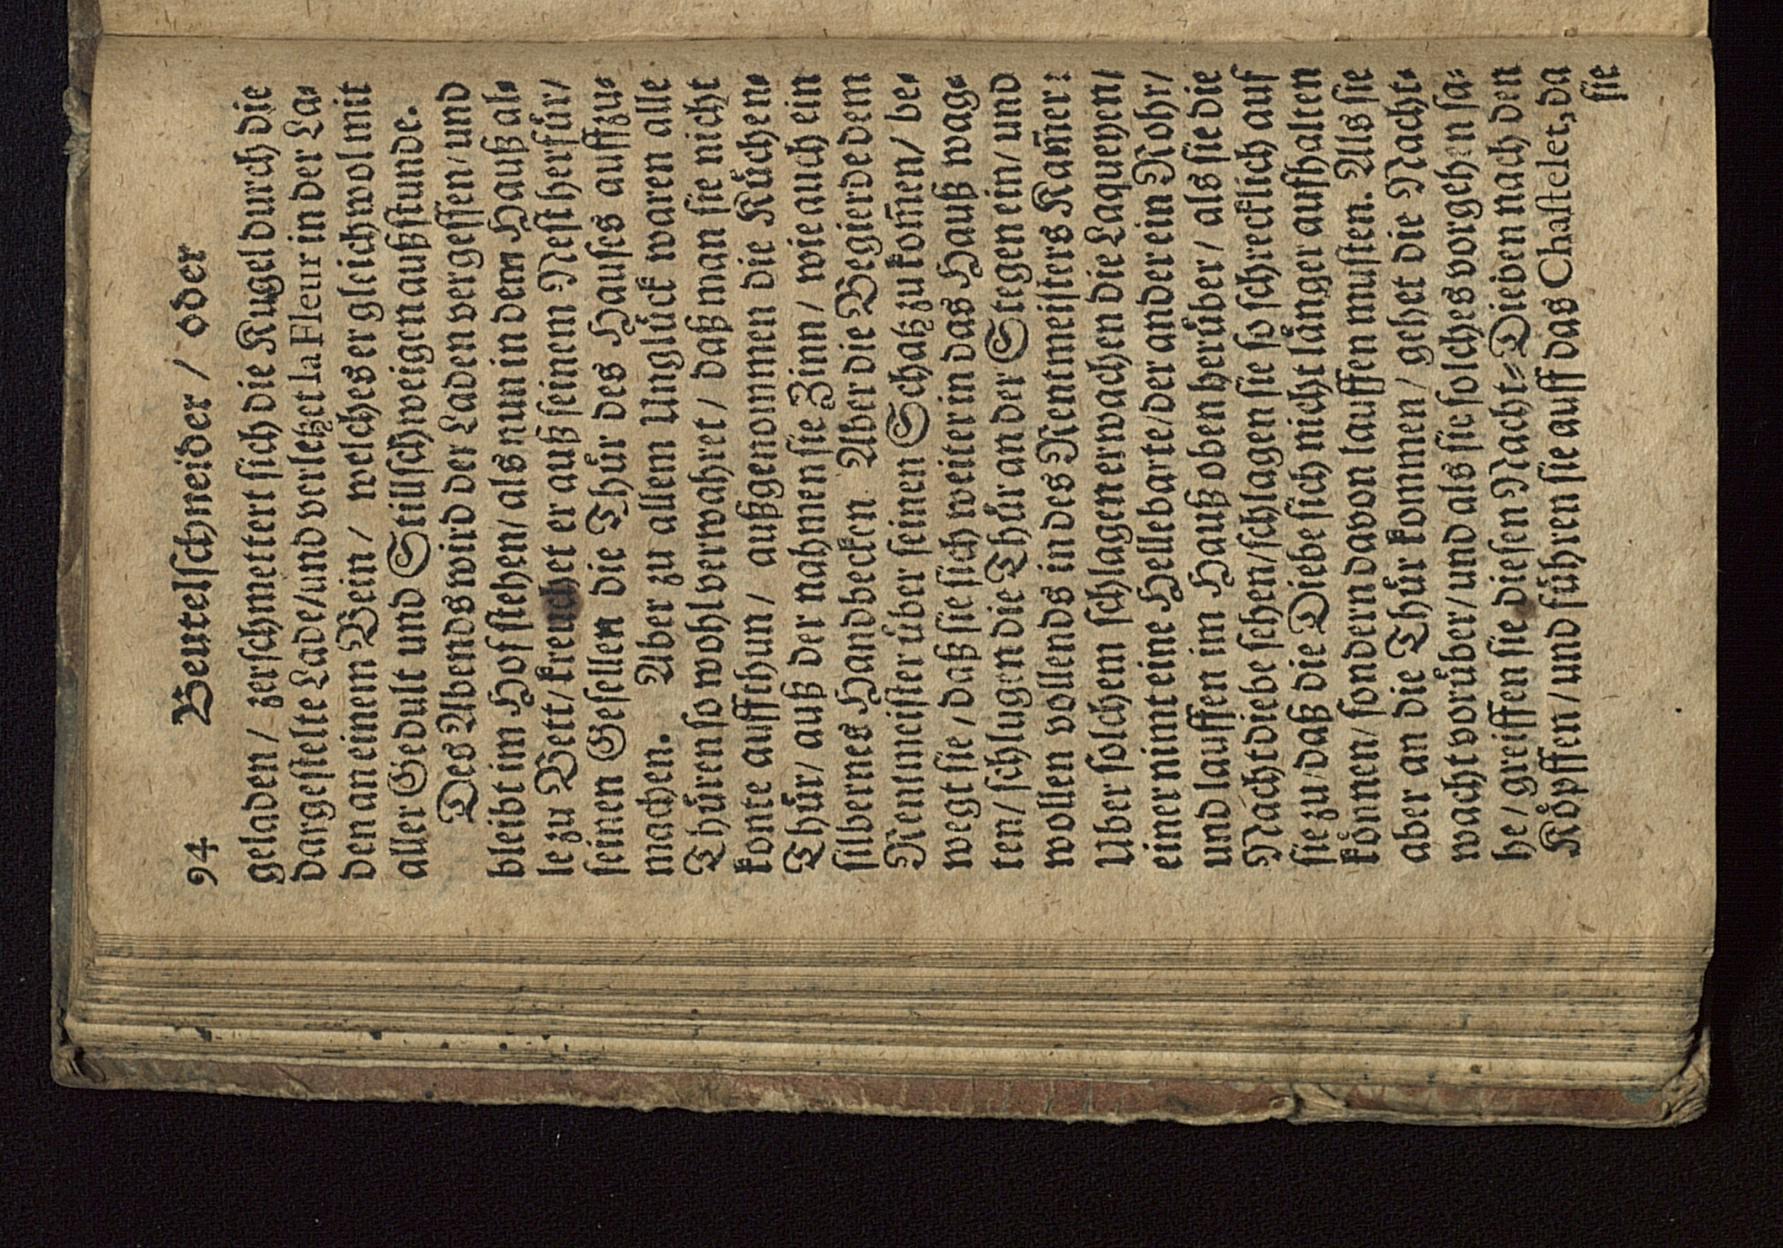 94 Beutelſchneider / oder
geladen / zerſchmettert ſich die Kugel durch die
dargeſtelte Lade/und verletzet la Fleur in der La⸗
den an einem Bein / welches er gleichwol mit
aller Gedult und Stillſchweigen außſtunde.
Des Abends wird der Laden vergeſſen/und
bleibt im Hof ſtehen/ als nun in dem Hauß al⸗
le zu Bett/ kreuchet er auß ſeinem Neſt herfuͤr/
ſeinen Geſellen die Thuͤr des Hauſes auffzu⸗
machen. Aber zu allem Ungluͤck waren alle
Thuͤren ſo wohl verwahret / daß man ſie nicht
konte auffthun / außgenommen die Kuͤchen⸗
Thuͤr/ auß der nahmen ſie Zinn / wie auch ein
ſilbernes Handbecken Aber die Begierde dem
Rentmeiſter uͤber ſeinen Schatz zu kom̃en / be⸗
wegt ſie / daß ſie ſich weiter in das Hauß wag⸗
ten/ ſchlugen die Thuͤr an der Stegen ein/ und
wollen vollends in des Rentmeiſters Kam̃er:
Uber ſolchem ſchlagen erwachen die Laqueyen/
einer nimt eine Hellebarte/der ander ein Rohr/
und lauffen im Hauß oben heruͤber / als ſie die
Nachtdiebe ſehen/ſchlagen ſie ſo ſchrecklich auf
ſie zu/daß die Diebe ſich nicht laͤnger aufhalten
koͤnnen/ ſondern davon lauffen muſten. Als ſie
aber an die Thuͤr kommen / gehet die Nacht⸗
wacht voruͤber/und als ſie ſolches vorgehen ſa⸗
he / greiffen ſie dieſen Nacht⸗Dieben nach den
Koͤpffen / und fuͤhren ſie auff das Chaſtelet, da
ſie